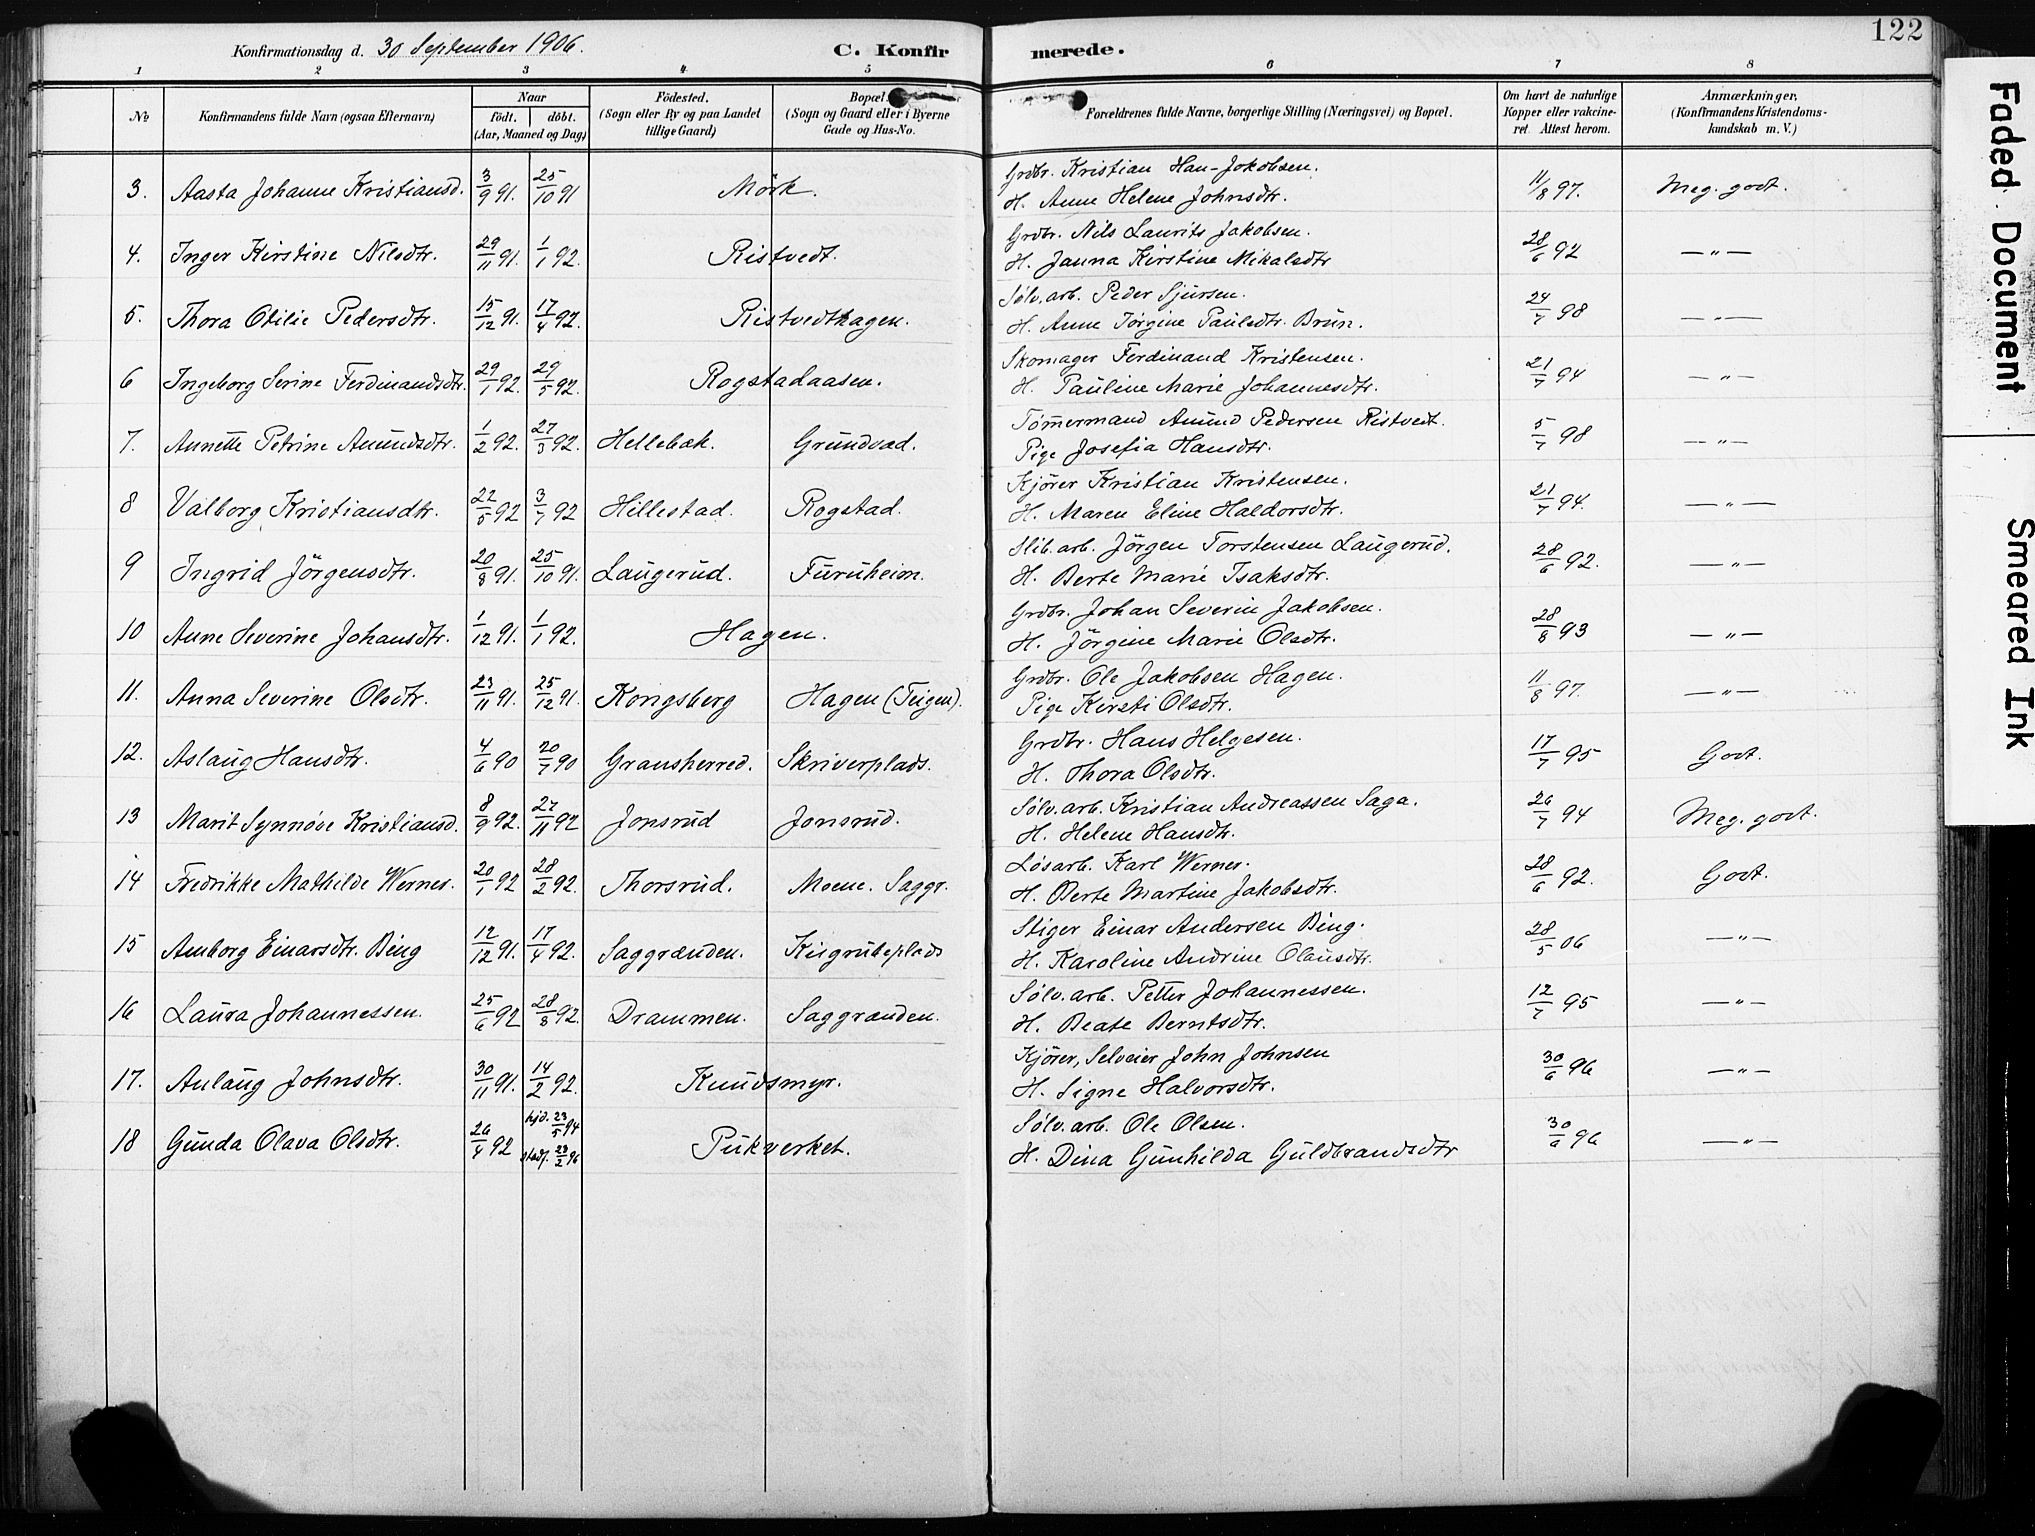 122
Konfirmationsdag d. 30 September 1906. C. Konfirmerede.
1 2 3 4 5 6 7 8
No Konfirmandens fulde Navn (ogsaa Efternavn) Naar født. døbt. (Aar, Maaned og Dag) Fødested. (Sogn eller By og paa Landet tillige Gaard) Bopæl. (Sogn og Gaard eller i Byerne Gade og Hus-No. Forældrenes fulde Navne, borgerlige Stilling (Næringsvei) og Bopæl. Om havt de naturlige Kopper eller vakcineret. Attest herom. Anmærkninger, (Konfirmandens Kristendomskundskab m. V.)
3. Aasta Johanne Kristiansd. 3/9 91. 25/10 91 Mörk. Grdbr. Kristian Han-Jokobsen. 11/8 97. Meg. godt.
H. Anne Helene Johnsdtr.
4. Inger Kirstine Nilsdtr. 29/11 91. 1/1 92. Ristvedt. Grdbr. Nils Laurits Jakobsen. 28/6 92 —„—
H. Janna Kirstine Mikalsdtr
5. Thora Otilie Pedersdtr. 15/12 91. 17/4 92. Ristvedthagen. Sølv.arb. Peder Sjursen. 24/7 98 —„—
H. Anne Jörgine Paulsdtr. Brun.
6 Ingeborg Serine Ferdinandsdtr. 29/1 92. 29/5 92. Rogstadaasen. Skomager Ferdinand Kristensen. 21/7 94 —„—
H. Pauline Marie Johannesdtr.
7. Annette Petrine Amundsdtr. 1/2 92. 27/3 92. Hellebæk. Grundvad. Tömmermand Amund Pedersen Ristvedt. 5/7 98 —„—
Pige Josefia Hansdtr.
8 Valborg Kristiansdtr. 22/5 92 3/7 92 Hillestad. Rogstad. Kjörer Kristian Kristensen. 21/7 94. —„—
H. Maren Eline Haldorsdtr.
9 Ingrid Jörgensdtr. 20/8 91. 25/10 91. Laugerud. Furuheim. Slib.arb. Jörgen Torstensen Laugerud. 28/6 92. —„—
H. Berte Marie Isaksdtr.
10 Anne Severine Johansdtr. 1/12 91. 1/1 92. Hagen. Grdbr. Johan Severin Jakobsen. 28/8 93 —„—
H. Jörgine Marie Olsdtr.
11. Anna Severine Olsdtr. 23/11 91. 25/12 91. Kongsberg Hagen (Teigen). Grdbr. Ole Jakobsen Hagen. 11/8 97. —„—
Pige Kirsti Olsdtr.
12. Aslaug Hansdtr. 4/6 90 20/7 90 Gransherred. Skriverplads. Grdbr. Hans Helgesen. 17/7 95 Godt.
H. Thora Olsdtr.
13 Marit Synnøve Kristiansd. 8/9 92. 27/11 92 Jonsrud Jonsrud. Sølv.arb. Kristian Andreassen Saga. 26/7 94 Meg. godt.
H. Helene Hansdtr.
14 Fredrikke Mathilde Werner. 20/1 92 28/2 92. Thorsrud. Moene. Saggr. Løsarb. Karl Werner. 28/6 92. Godt.
H. Berte Martine Jakobsdtr.
15 Amborg Einarsdtr. Bing 12/12 91. 17/4 92. Saggrænden. Kisgrubeplads Stiger Einar Andersen Bing. 28/5 06 —„—
H. Karoline Andrine Olausdtr.
16 Laura Johannessen. 25/6 92 28/8 92. Drammen. Saggrænden. Sølv.arb. Petter Johannessen. 12/7 95 —„—
H. Beate Berntsdtr.
17. Anlaug Johnsdtr. 30/11 91. 14/2 92. Knudsmyr. Kjörer, Selveier John Johnsen 30/6 96 —„—
H. Signe Halvorsdtr.
18 Gunda Olava Olsdtr. 26/4 92 hjd. 23/5 94 Pukverket. Sølv.arb. Ole Olsen. 30/6 96 —„—
stadf. 23/2 96 H. Dina Gunhilda Guldbrandsdtr
Faded Document
Smeared Ink